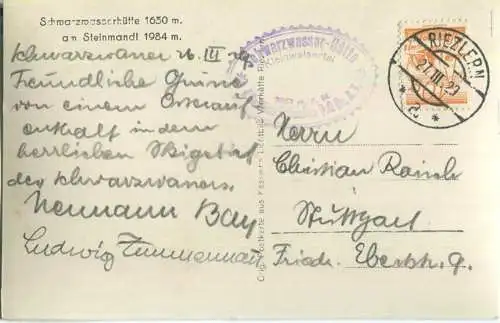 Schwarzwasserhütte 1650 m.
am Steinmandl 1984 m.
Schwarzwasser 26 III 29
Freundliche Grüße
von einem Osterauf-
enthalt in dem
herrlichen Skigebiet
des Schwarzwassers.
Hermann Bay
Ludwig Zimmermann
Schwarzwasser-Hütte
Kleinwalsertal
RIEZLERN
27.III.29
Herrn
Christian Raisch
Stuttgart
Friedr. Ebertstr. 9.